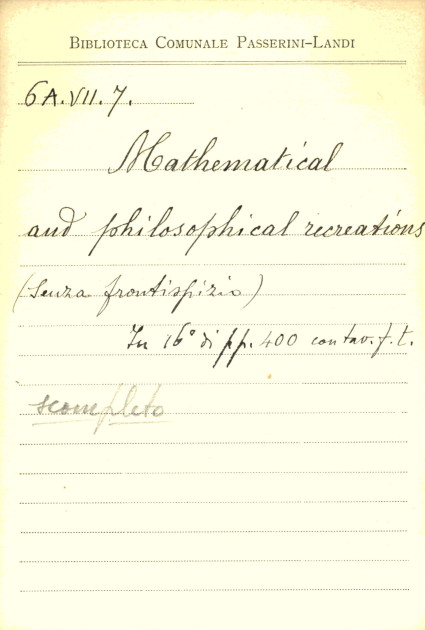 BIBLIOTECA COMUNALE PASSERINI-LANDI
6A.VII.7.
Mathematical
and philosophical recreations
(Senza frontispizio)
In 16° di pp. 400 con tav. f. t.
scompleto